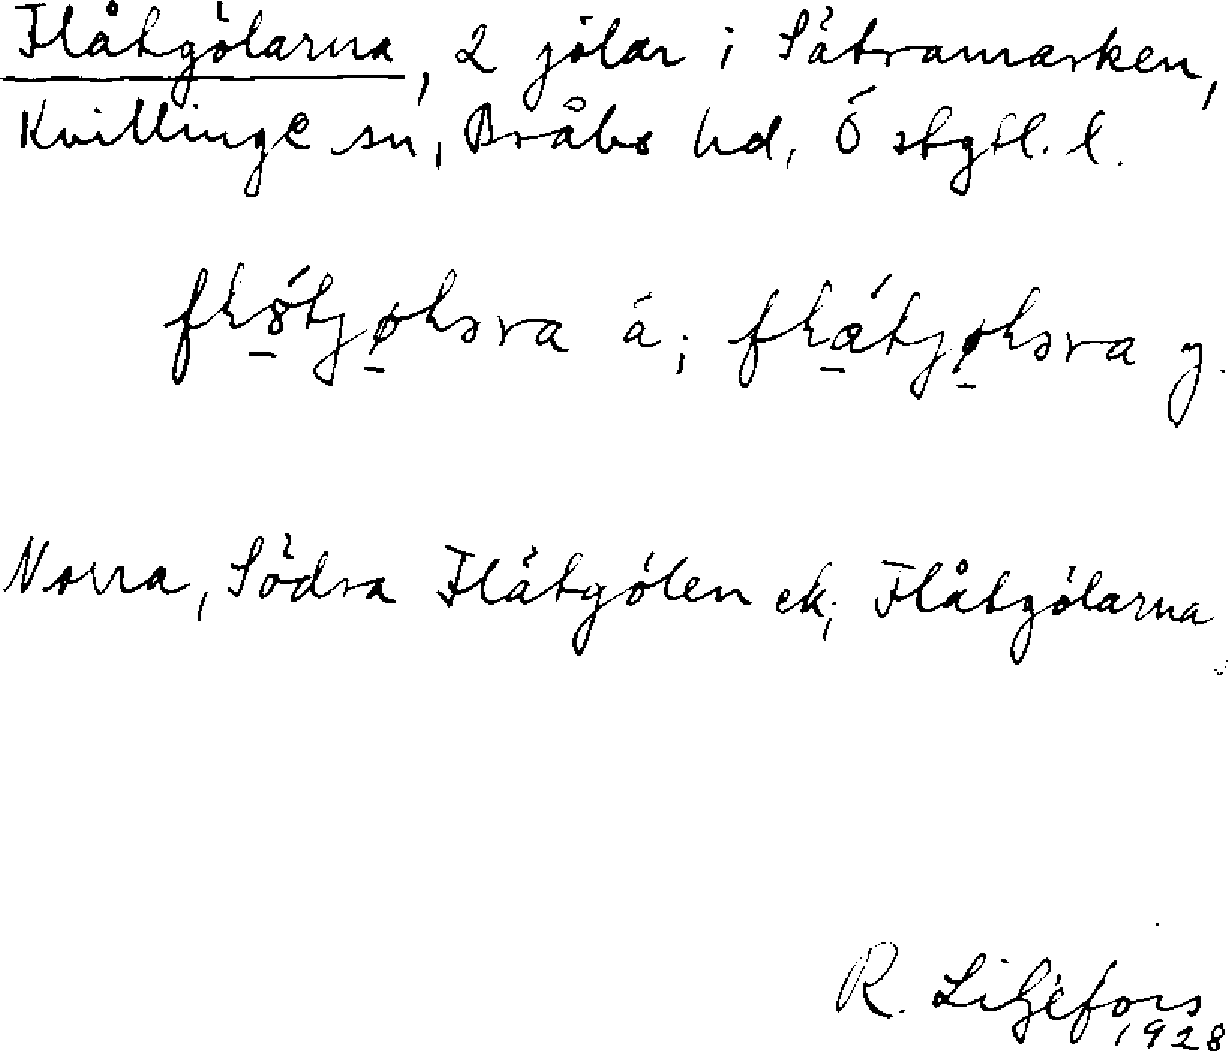 Flåtgölarna, 2 jölar i Sätramarken,
Kvillinge sn, Bråbo hd, Östgtl. l.
á; y.
Norra, Södra Flåtgölen ek; Flåtgölarna
R. Liljefors
1928